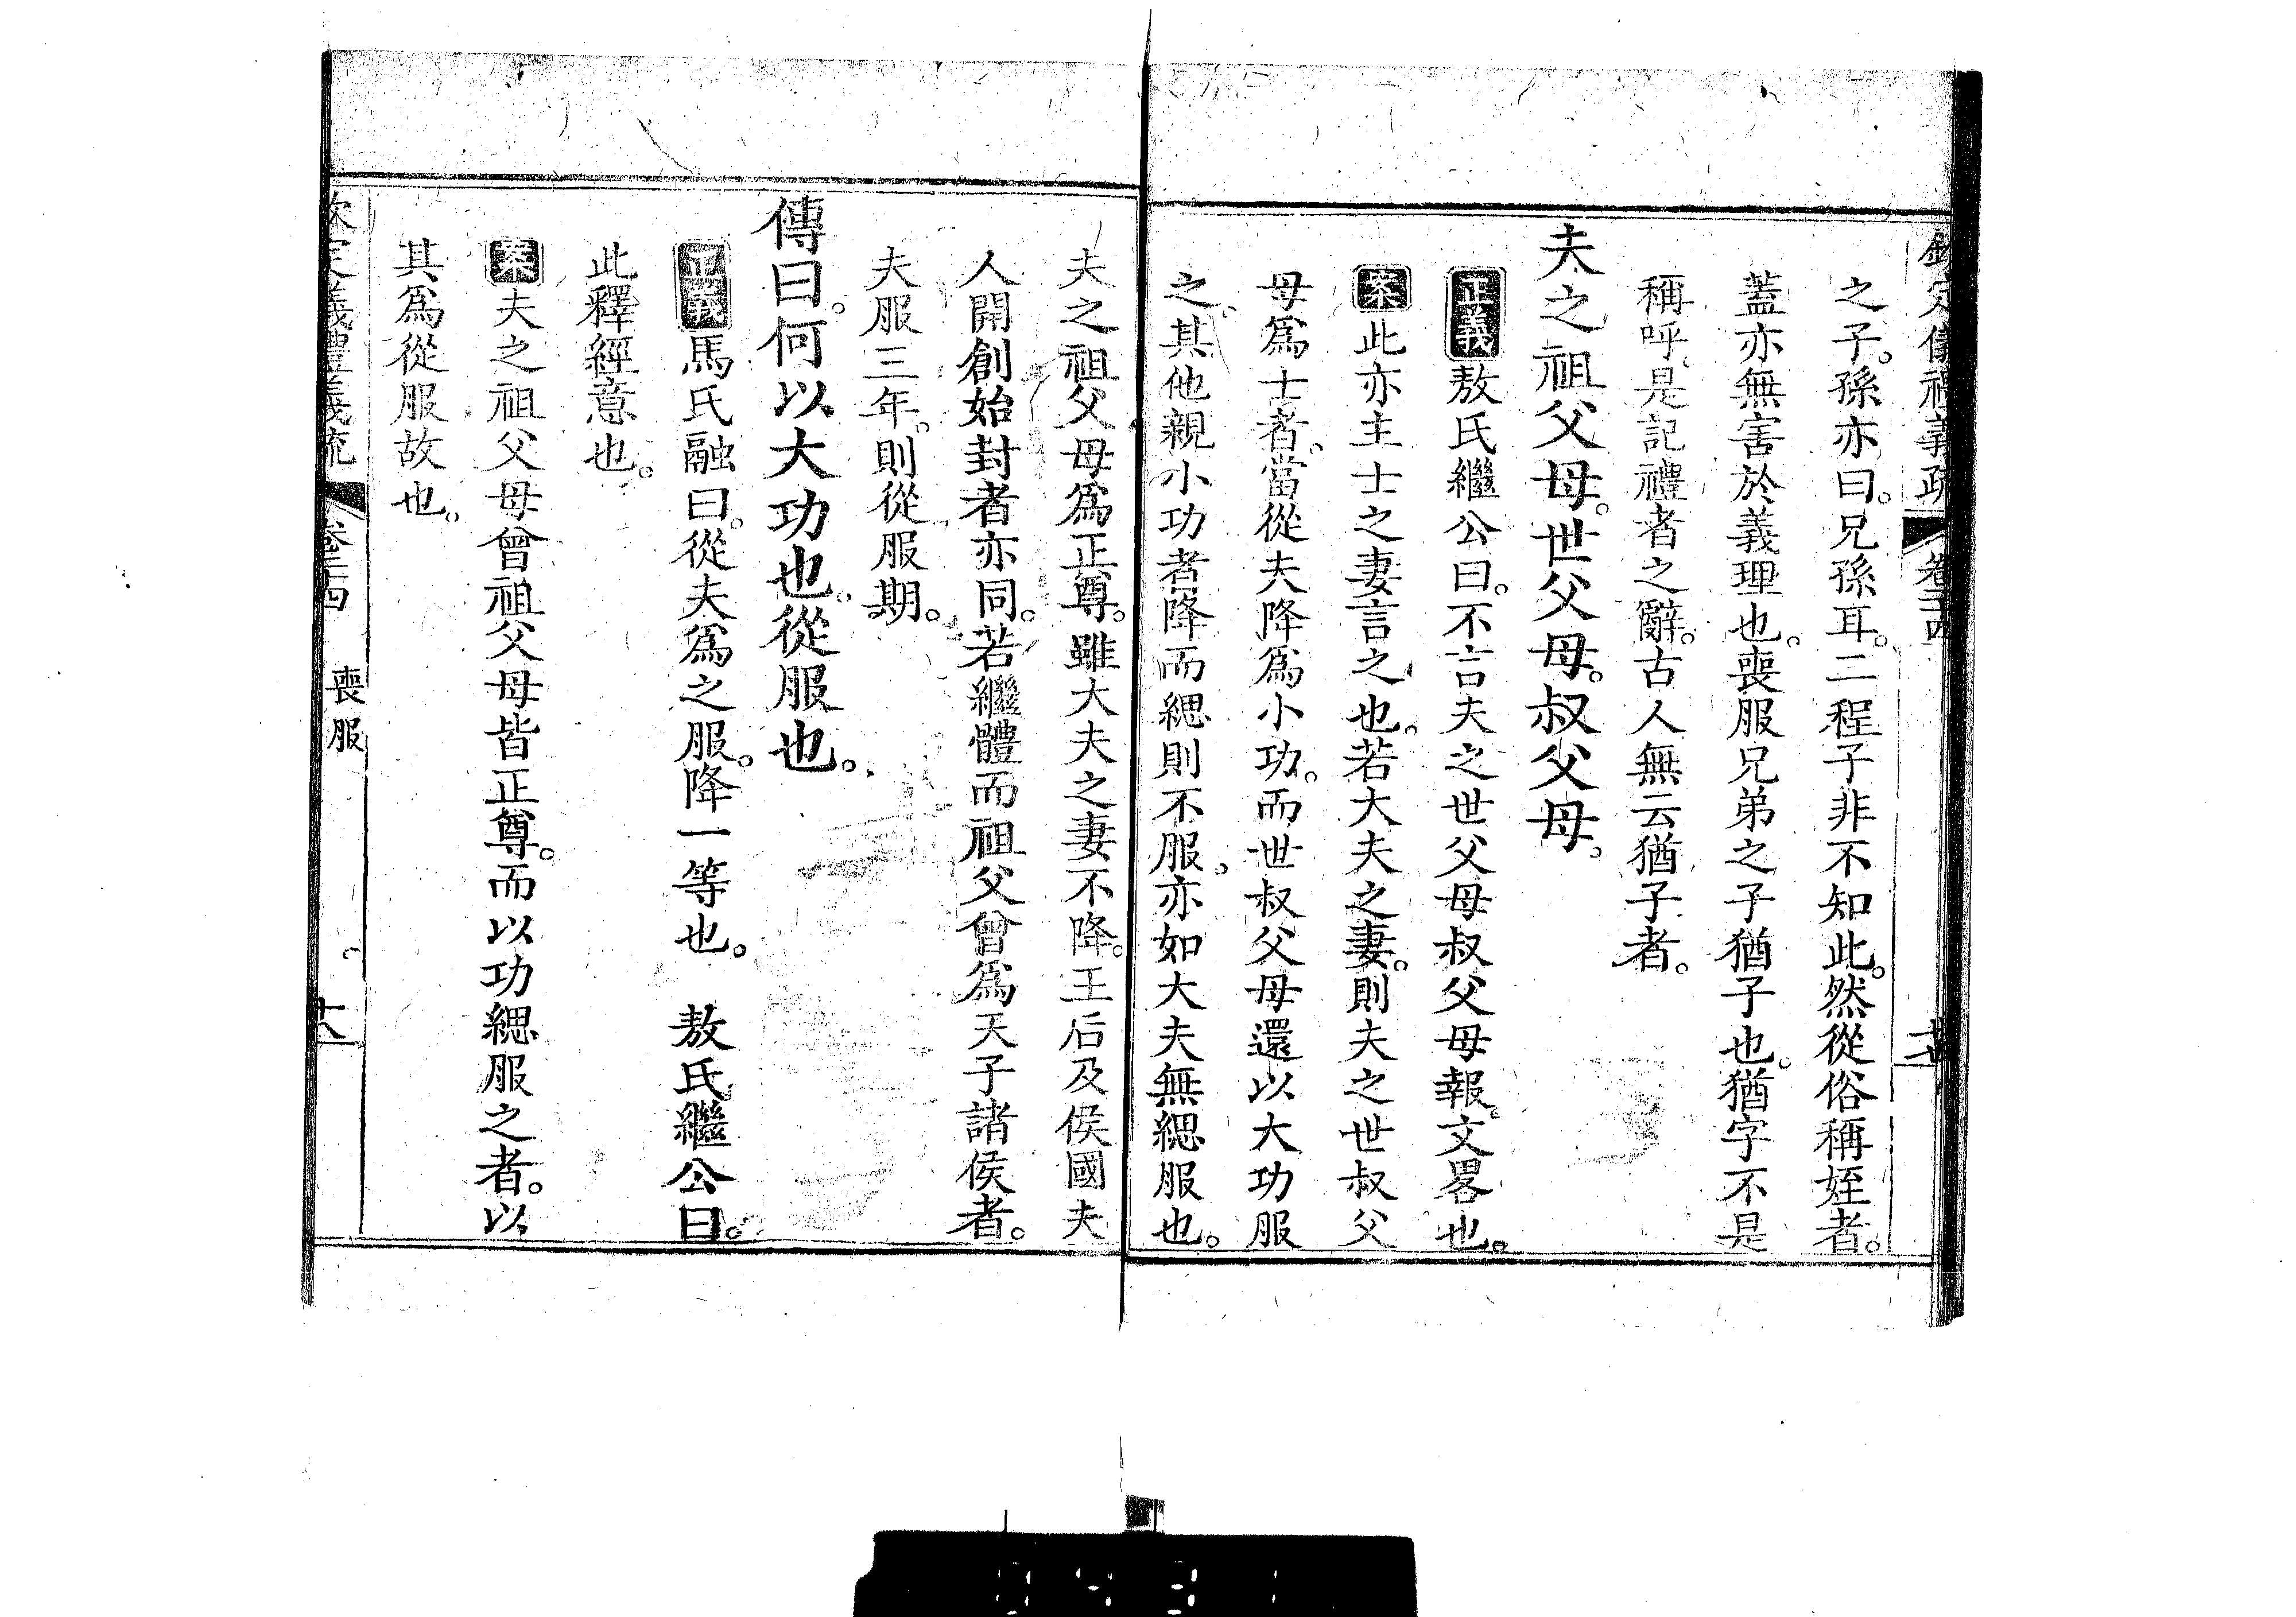 欽定儀禮義疏 卷二十四 十七
之子。孫亦曰。兄孫耳。二程子非不知此。然從俗稱姪者。
蓋亦無害於義理也。喪服兄弟之子猶子也。猶字不是
稱呼。是記禮者之辭。古人無云猶子者。
夫之祖父母。世父母。叔父母。
正義敖氏繼公曰。不言夫之世父母叔父母報。文畧也。
案此亦主士之妻言之也。若大夫之妻。則夫之世叔父
母爲士者。當從夫降爲小功。而世叔父母還以大功服
之。其他親小功者降而緦則不服。亦如大夫無緦服也。
夫之祖父母爲正尊。雖大夫之妻不降。王后及侯國夫
人開創始封者亦同。若繼體而祖父曾爲天子諸侯者。
夫服三年。則從服期。
傳曰。何以大功也。從服也。
正義馬氏融曰。從夫爲之服。降一等也。 敖氏繼公曰。
此釋經意也。
案夫之祖父母曾祖父母皆正尊。而以功緦服之者。以
其爲從服故也。
欽定儀禮義疏 卷二十四 喪服 十八